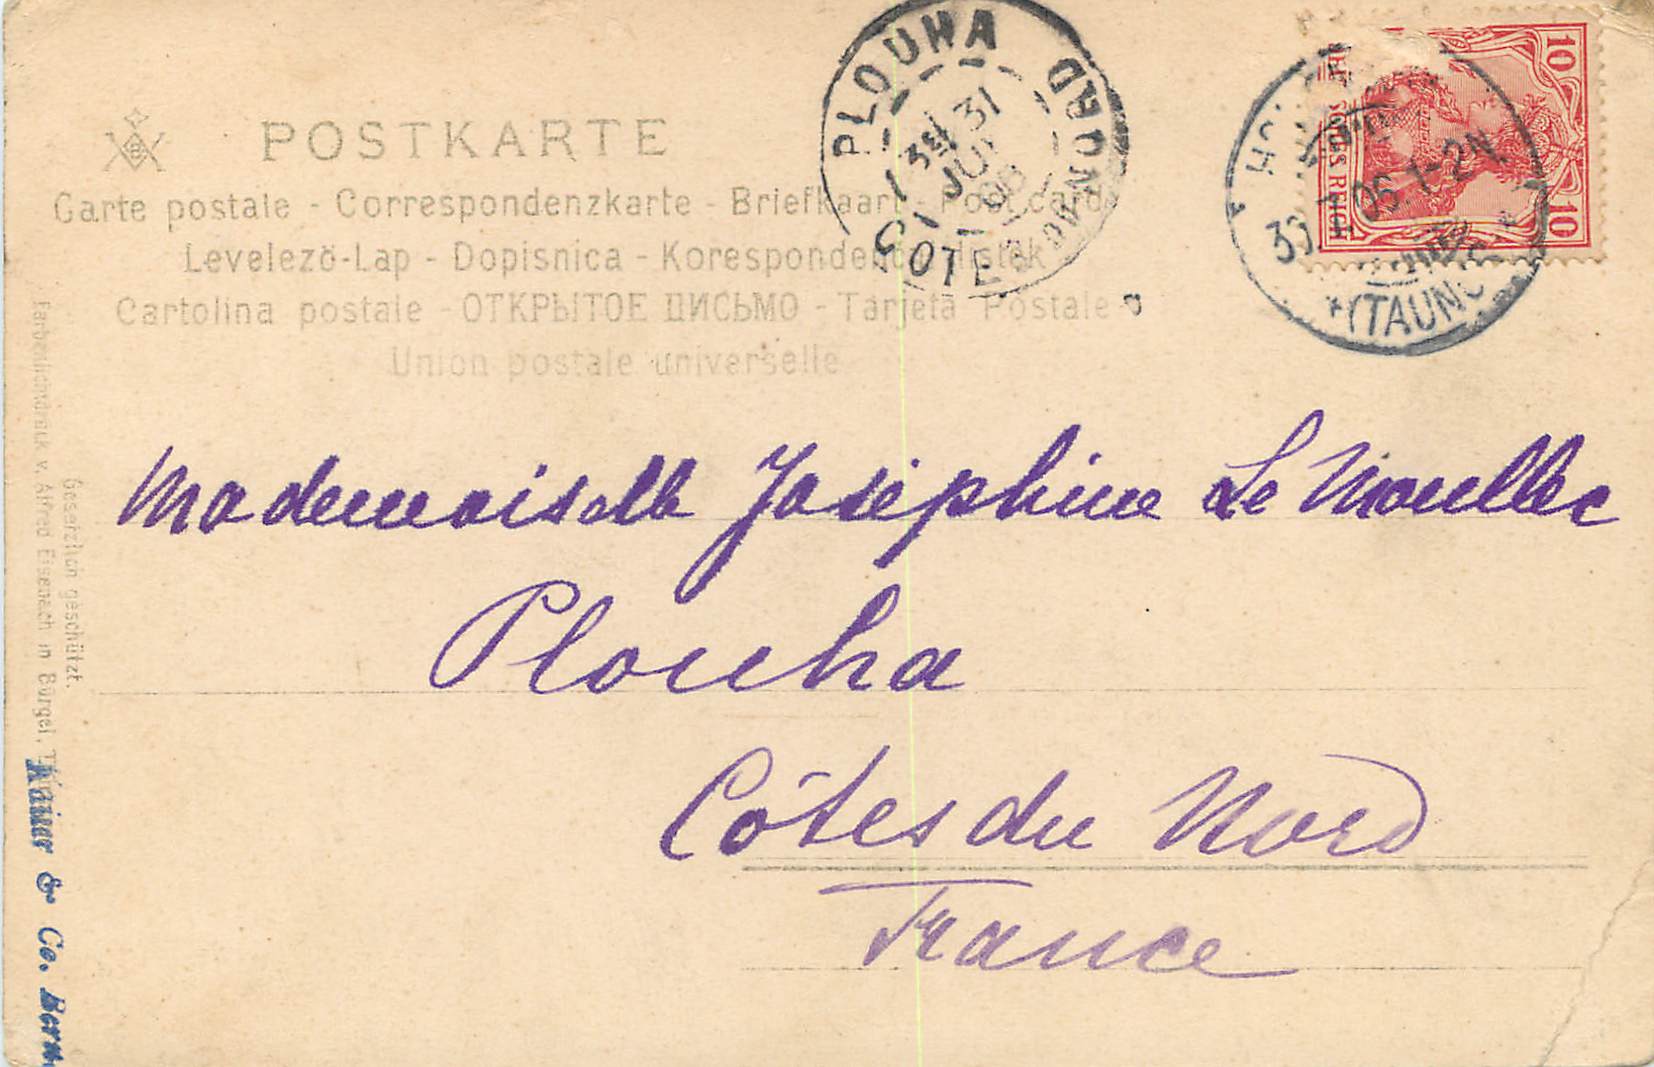 POSTKARTE
Carte postale - Correspondenzkarte - Briefkaart - Post card
Levelezö-Lap - Dopisnica - Korespondenční lístek
Cartolina postale - ОТКРЫТОЕ ПИСЬМО - Tarjeta Postale
Union postale universelle
PLOUHA
COTES DU NORD
31
JUIL
06
10
10
30.7.06.1-2N.
(TAUNUS)
Mademoiselle Joséphine Le Moullec
Plouha
Côtes du Nord
France
Gesetzlich geschützt.
Farbenlichtdruck v. Alfred Eisenach in Bürgel,
Kaiser & Co. Bern